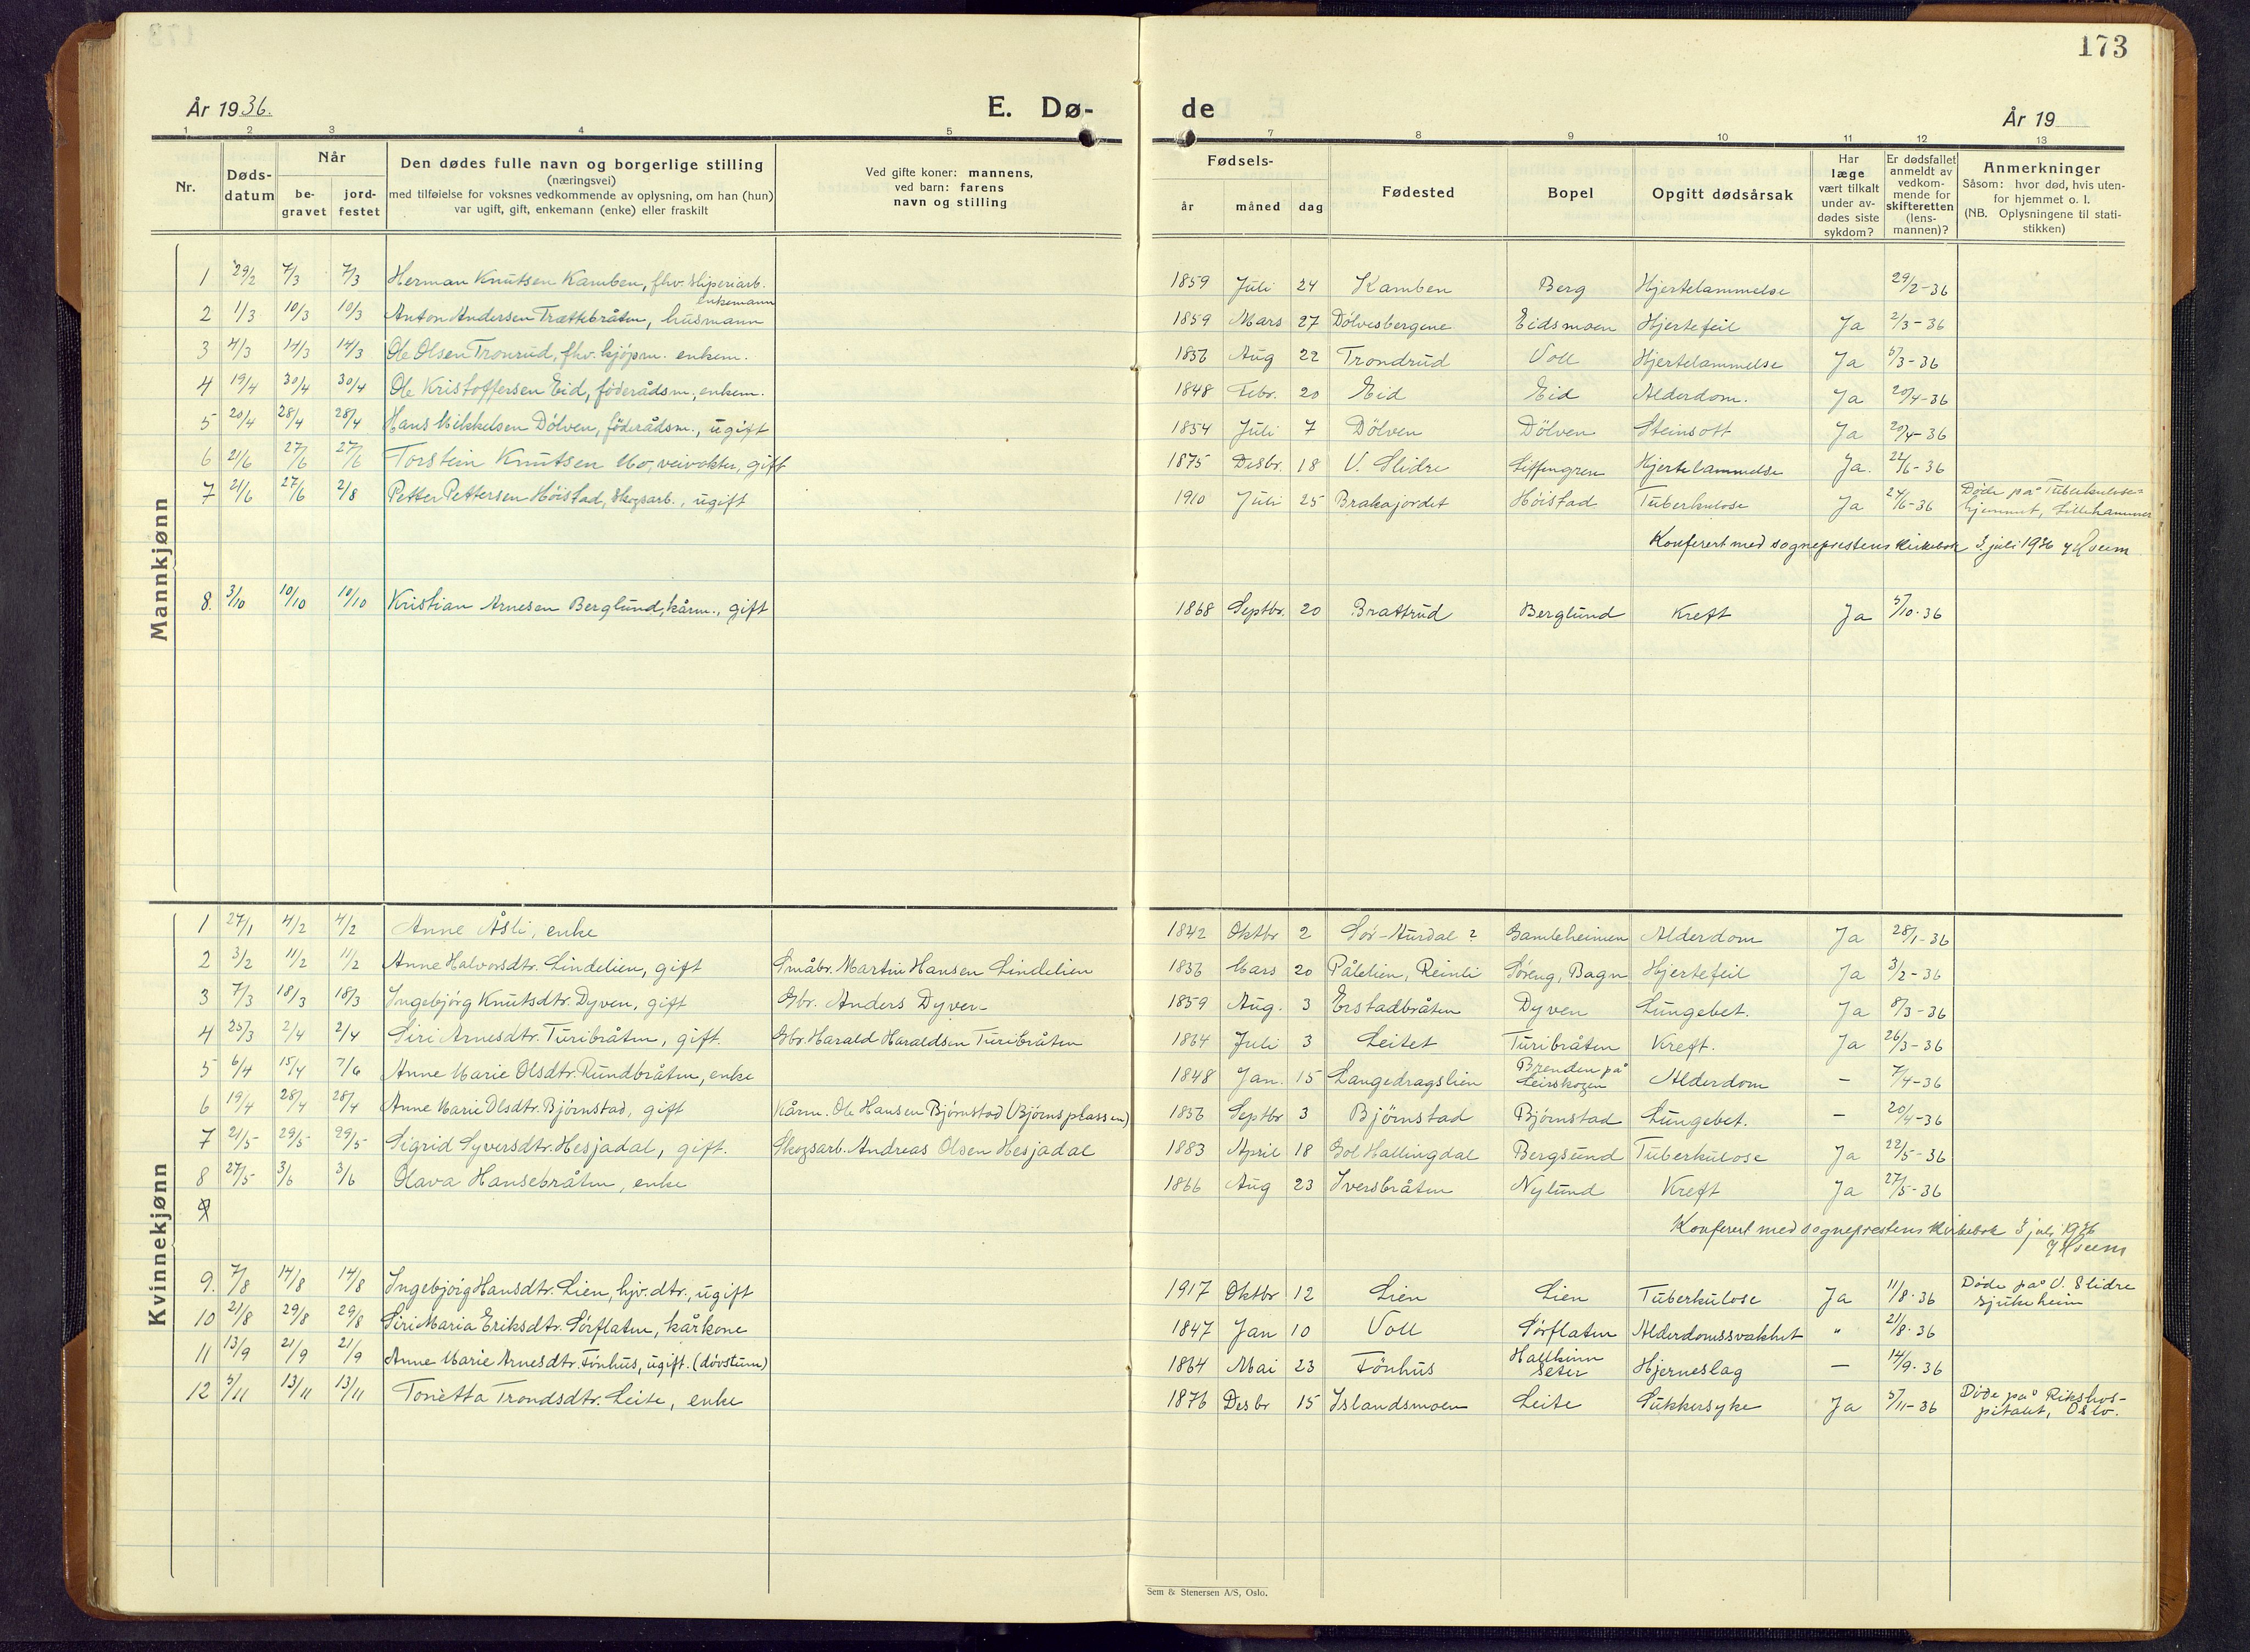 173
År 1936. E. Dø- de År 19
1 2 3 4 5 7 8 9 10 11 12 13
Nr. Døds-datum Når be-gravet jord-festet Den dødes fulle navn og borgerlige stilling (næringsvei) med tilføielse for voksnes vedkommende av oplysning, om han (hun) var ugift, gift, enkemann (enke) eller fraskilt Ved gifte koner: mannens, ved barn: farens navn og stilling Fødsels- år måned dag Fødested Bopel Opgitt dødsårsak Har læge vært tilkalt under av-dødes siste sykdom? Er dødsfallet anmeldt av vedkom-mende for skifteretten (lens-mannen)? Anmerkninger Såsom: hvor død, hvis uten-for hjemmet o. l. (NB. Oplysningene til stati-stikken)
Mannkjønn
1 29/2 7/3 7/3 Herman Knutsen Kamben, fhv. sliperiarb. enkemann 1859 Juli 24 Kamben Berg Hjertelammelse 29/2-36
2 1/3 10/3 10/3 Anton Andersen Trættebråten, husmann 1859 Mars 27 Dölvesbergene Eidsmoen Hjertefeil Ja 2/3-36
3 4/3 14/3 14/3 Ole Olsen Tronrud, fhv. kjöpm. enkem. 1856 Aug 22 Trondrud Voll Hjertelammelse Ja 5/3-36
4 19/4 30/4 30/4 Ole Kristoffersen Eid, föderådsm., enkem. 1848 Febr. 20 Eid Eid Alderdom. Ja 20/4-36
5 20/4 28/4 28/4 Hans Mikkelsen Dölven, föderådsm., ugift 1854 Juli 7 Dölven Dölven Steinsott Ja 20/4-36
6 21/6 27/6 27/6 Torstein Knutsen Mo, veivokter, gift 1875 Desbr. 18 V. Slidre Hjertelammelse Ja. 22/6-36
7 21/6 27/6 2/8 Petter Pettersen Høistad, skogsarb., ugift 1910 Juli 25 Brakajordet Høistad Tuberkulose Ja 24/6-36 Døde på Tuberkulose-hjemmet, Lillehammer
Konferert med sogneprestens kirkebok 3. juli 1936 Hvem
8. 3/10 10/10 10/10 Kristian Arnesen Berglund, kårm., gift 1868 Septbr. 20 Brattrud Berglund Kreft Ja 5/10-36
Kvinnekjønn
1 27/1 4/2 4/2 Anne Åsli, enke 1842 Oktbr 2 Sør-Aurdal ? Gamleheimen Alderdom Ja 28/1-36
2 3/2 11/2 11/2 Anne Halvorsdtr. Lindelien, gift Småbr. Martin Hansen Lindelien 1856 Mars 20 Pålelien, Reinli Søreng, Bagn Hjertefeil Ja 3/2-36
3 7/3 18/3 18/3 Ingebjørg Knutsdtr. Dyven, gift Gbr. Anders Dyven 1859 Aug. 3 Erstadbråten Dyven Lungebet. Ja 8/3-36
4 25/3 2/4 2/4 Siri Arnesdtr. Turibråten, gift. Gbr. Harald Haraldsen Turibråten 1864 Juli 3 Leitet Turibråten Kreft. Ja 26/3-36
5 6/4 15/4 7/6 Anne Marie Olsdtr. Rundbråten, enke 1848 Jan. 15 Langedragslien Brenden på Leirskogen Alderdom – 7/4-36
6 19/4 28/4 28/4 Anne Marie Olsdtr. Björnstad, gift Kårm. Ole Hansen Björnstad (Björnsplassen) 1856 Septbr 3 Björnstad Björnstad Lungebet. – 20/4-36
7 21/5 29/5 29/5 Sigrid Syversdtr. Hesjadal, gift. Skogsarb. Andreas Olsen Hesjadal 1883 April 18 Gol Hallingdal Bergsund Tuberkulose Ja 22/5-36
8 27/5 3/6 3/6 Olava Hansebråten, enke 1866 Aug 23 Iversbråten Nylund Kreft Ja 27/5-36
9
Konferert med sogneprestens kirkebok 3 juli 1936
Hvem
9. 7/8 14/8 14/8 Ingebjörg Hansdtr. Lien, hjv. dtr., ugift 1917 Oktbr 12 Lien Lien Tuberkulose Ja 11/8-36 Døde på V. Slidre sjukeheim
10 21/8 29/8 29/8 Siri Maria Eriksdtr. Sørflaten, kårkone 1847 Jan 10 Voll Sørflaten Alderdomssvakhet " 21/8-36
11 13/9 21/9 21/9 Anne Marie Arnesdtr. Fönhus, ugift. (døvstum) 1864 Mai 23 Fönhus Hallkinn seter Hjerneslag – 14/9-36
12 5/11 13/11 13/11 Tonetta Trondsdtr. Leite, enke 1876 Desbr 15 Islandsmoen Leite Sukkersyke Ja 5/11-36 Døde på Rikshos-pitalet, Oslo.
Sem & Stenersen A/S, Oslo.